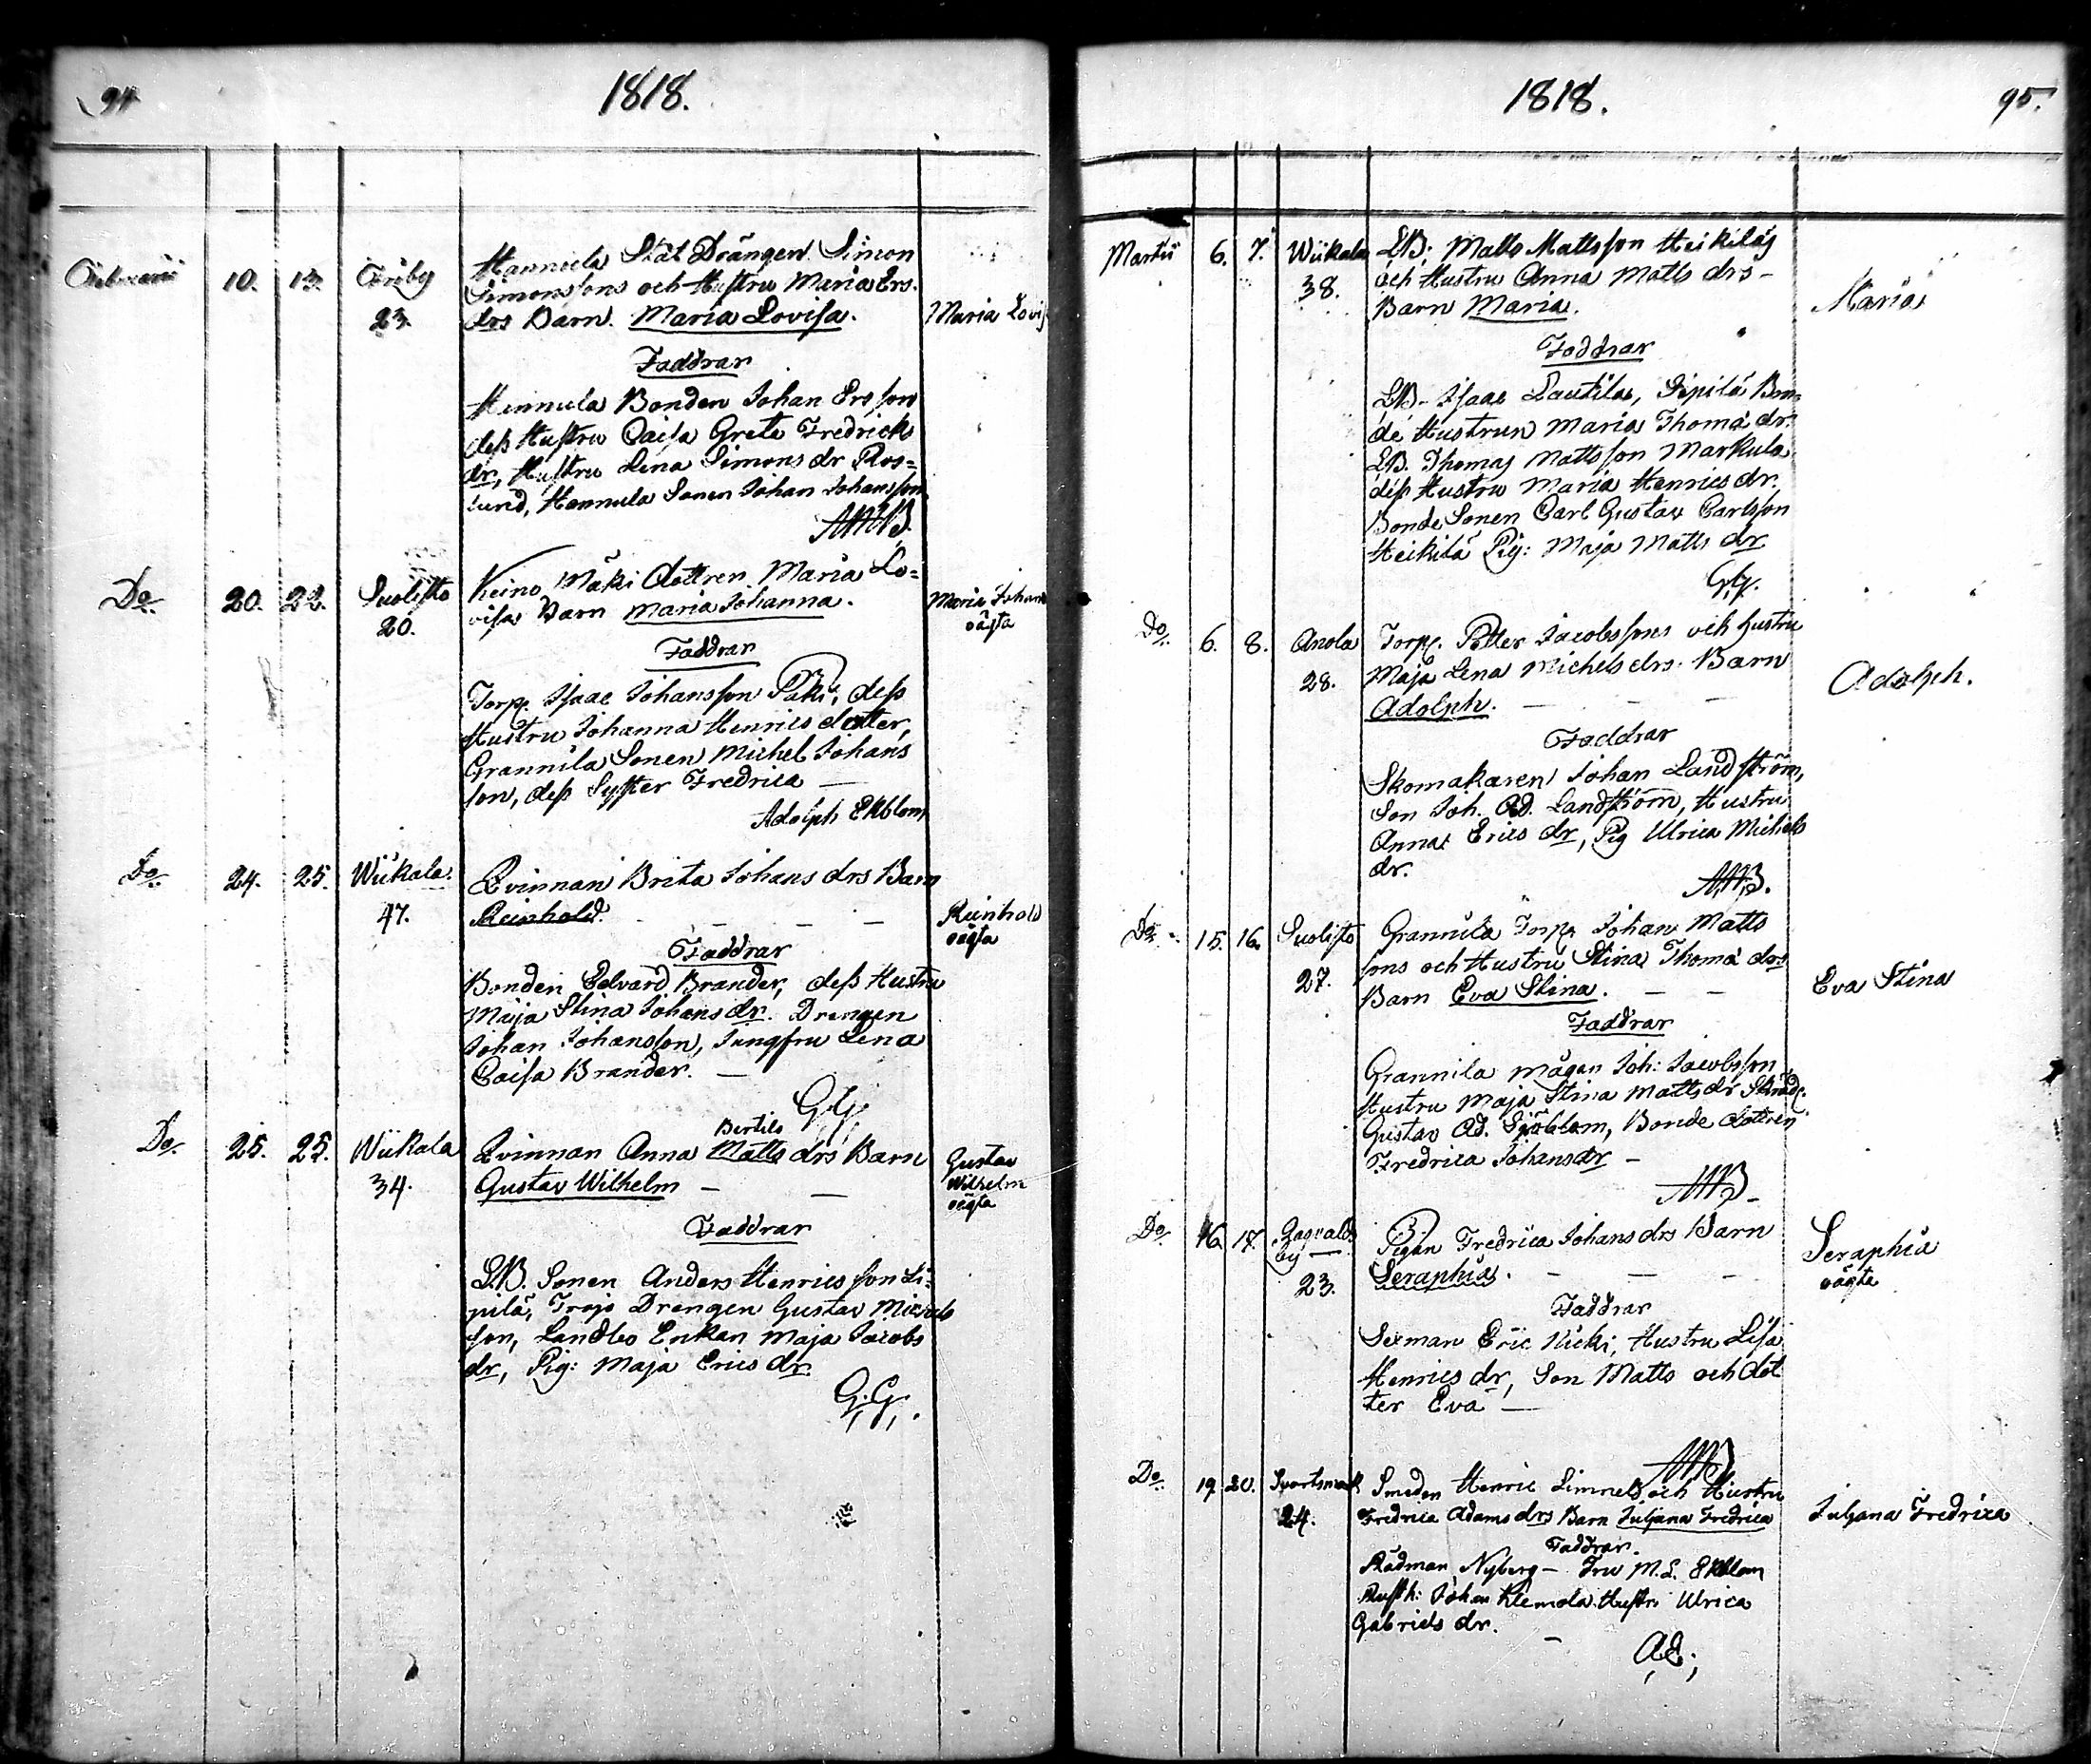 94
1818.
Februarii 10. 13. Friby Hannula Stat Drängen Simon
Simonssons och Hustru Maria Ers.
23. drs Barn. Maria Lovisa. Maria Lovis
Faddrar
Hannula Bonden Johan Ersson
dess Hustru Caisa Greta Fredrichs
dr, Hustru Lena Simons dr Ros=
lund, Hannula Sonen Johan Johansson
Do 20. 22. Suolisto Keino Mäki dottren Maria Lo=
20. visas Barn Maria Johanna. Maria Johan
oägta
Faddrar
Torp. Isaac Johansson Päki, dess
Hustru Johanna Henrics dotter,
Grannila Sonen Michel Johans
son, dess Syster Fredrica —
Adolph Ekblom
Do 24. 25. Wiikala. Qvinnan Brita Johans drs Barn
47. Reinhold. — — — Reinhold
oägta
Faddrar
Bonden Edvard Brander, dess Hustru
Maja Stina Johans dr. Drengen
Johan Johansson, Jungfru Lena
Caisa Brander. —
G.G.
Bertils
Do 25. 25. Wiikala Qvinnan Anna Matts drs Barn Gustav
34. Gustav Wilhelm — — Wilhelm
oägta
Faddrar
L.B. Sonen Anders Henricsson Si=
pilä, Trojs Drengen Gustav Michels
son, Landbo Enkan Maja Jacobs
dr, Pig: Maja Erics dr.
G.G.
1818.
95.
Martii 6. 7. Wiikala LB; Matts Mattsson Heikiläs
38. och Hustru Anna Matts drs—
Barn Maria. Maria
Faddrar
LB- Isaac Lautila, Sipilä Bon=
de Hustrun Maria Thomæ dr.
LB. Thomas Mattsson Markula
dess Hustru Maria Henrics dr.
Bonde Sonen Carl Gustav Carlsson
Heikilä Pig: Maja Matts dr
G.G.
Do 6. 8. Anola Torp. Petter Jacobssons och Hustru
28. Maja Lena Michels drs. Barn
Adolph. — — Adolph.
Faddrar
Skomakaren Johan Landström,
Son Joh. Ad. Landström, Hustru
Anna Erics dr, Pig Ulrica Michels
dr.
Do 15. 16. Suolisto Grannila Torp. Johan Matts
27. sons och Hustru Stina Thomæ drs
Barn Eva Stina. — — Eva Stina
Faddrar
Grannila Mågen Joh: Jacobsson
Hustru Maja Stina Matts dr
Gustav Ad. Sjöblom, Bonde dottren
Fredrica Johans dr —
Do 16. 17. Ragvalds Pigan Fredrica Johans drs Barn
by —
23. Seraphia. — — — Seraphia
oägta
Faddrar
Sexman Eric Kicki, Hustru Lisa
Henrics dr, Son Matts och Dot
ter Eva —
Do 19. 20. Svartsmark Smeden Henric Limnels och Hustru
24. Fredrica Adams drs Barn Juljana Fredrica Juljana Fredrica
Faddrar.
Rådman Nyberg — Fru M.L. Ekblom
Rusth: Johan Klemola Hustr: Ulrica
Gabriels dr. —
A.E.